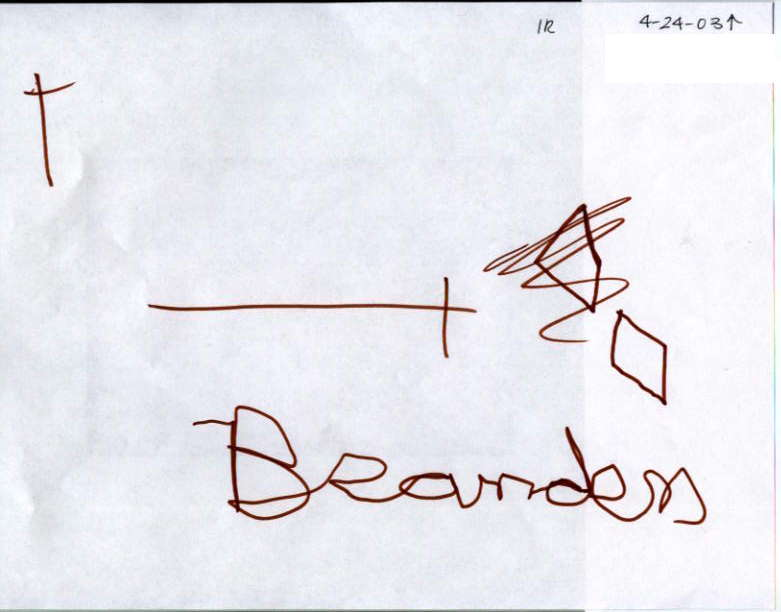 IR 4-24-03↑
Brandon